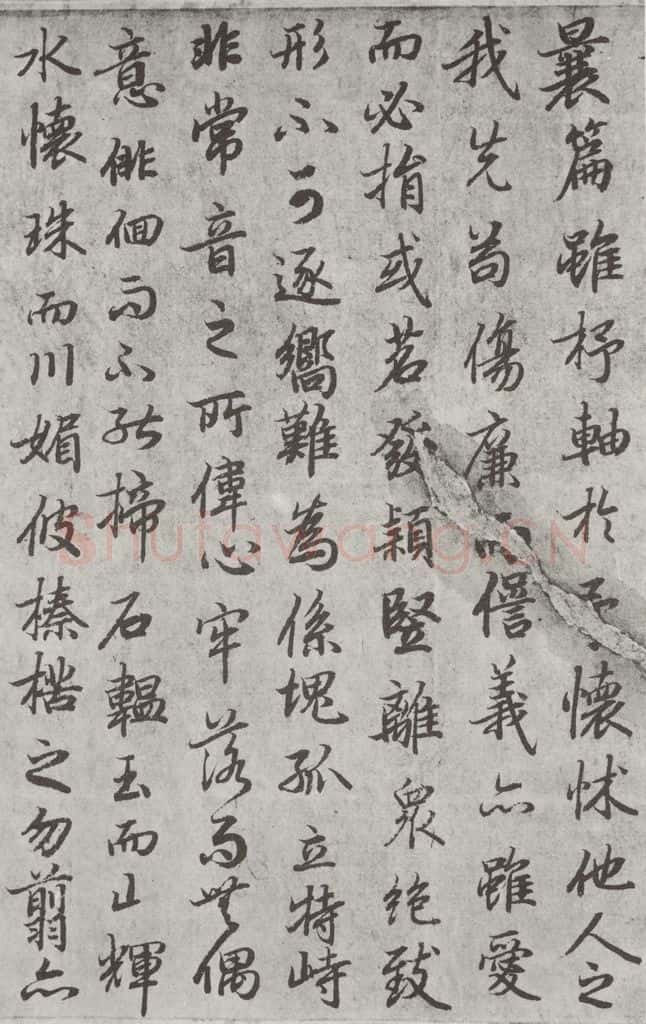 曩篇雖杼軸於予懷怵他人之
我先苟傷廉而𠎝義亦雖愛
而必捐或苕發穎竪離衆絶致
形不可逐嚮難為係塊孤立特峙
非常音之所偉心牢落而無偶
意俳佪而不能揥石轀玉而山輝
水懷珠而川媚彼榛楛之勿翦亦
Shufawang.CN